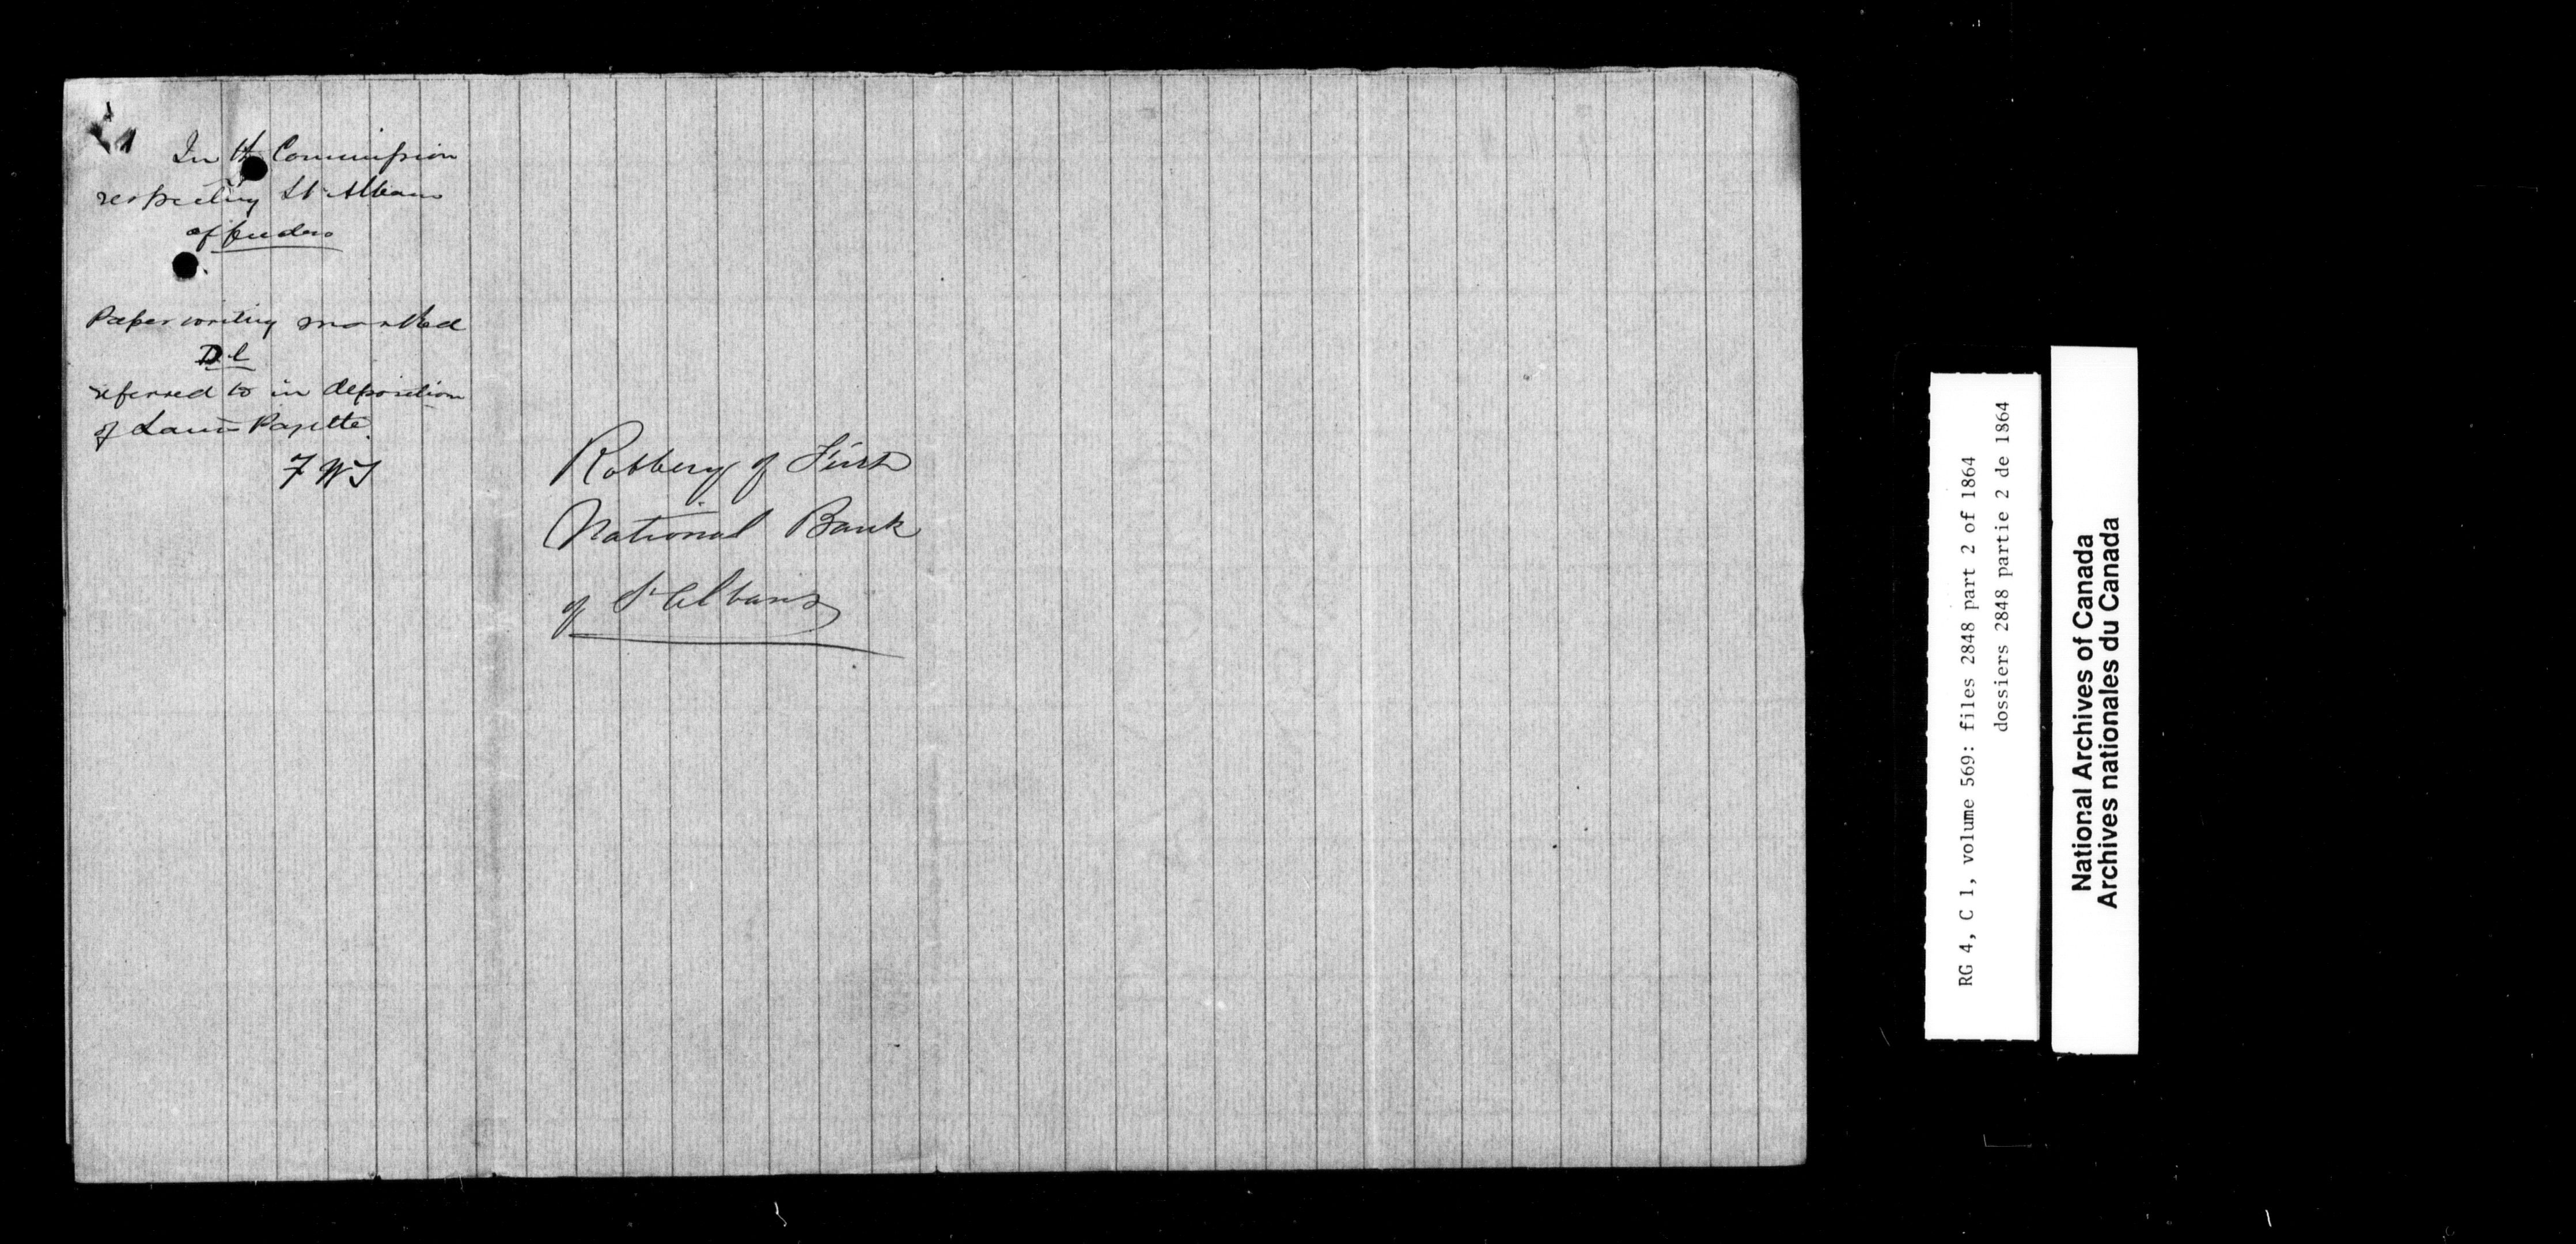 In the Commission
respecting St Albans
offenders
Paper writing marked
D.l
referred to in deposition
of Louis Payette
F W T
Robbery of First
National Bank
of St Albans
RG 4, C 1, volume 569: files 2848 part 2 of 1864
dossiers 2848 partie 2 de 1864
National Archives of Canada
Archives nationales du Canada